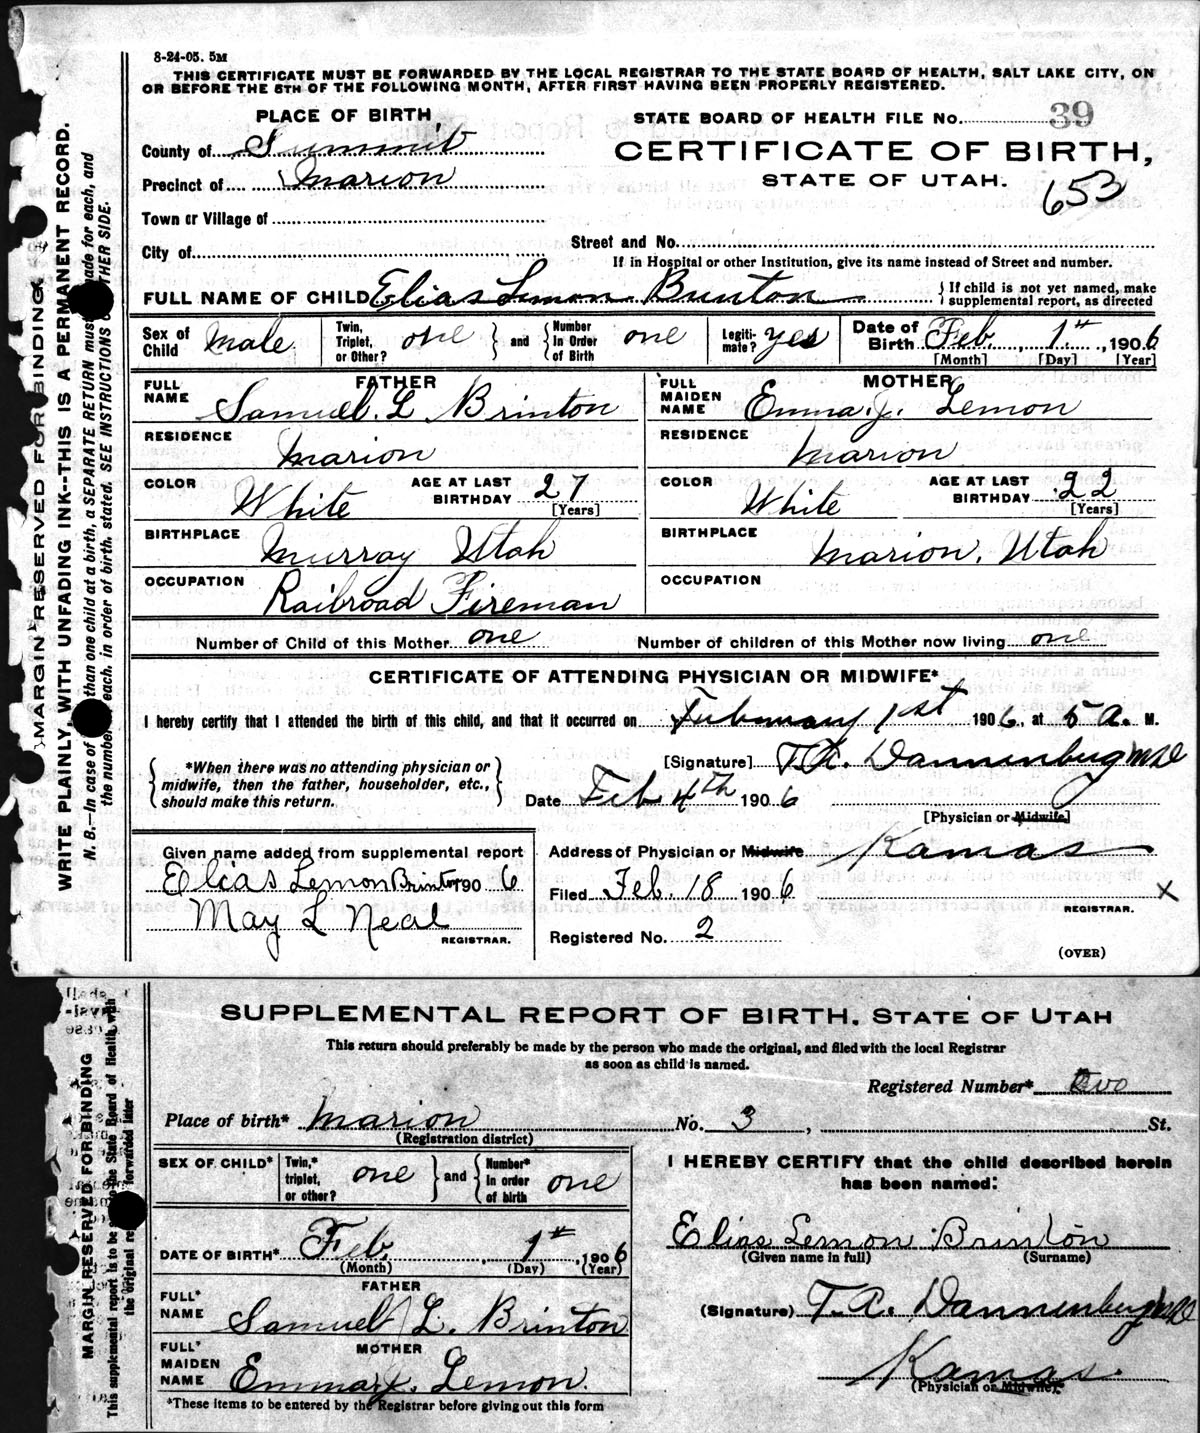 8-24-05. 5M
THIS CERTIFICATE MUST BE FORWARDED BY THE LOCAL REGISTRAR TO THE STATE BOARD OF HEALTH, SALT LAKE CITY, ON
OR BEFORE THE 5TH OF THE FOLLOWING MONTH, AFTER FIRST HAVING BEEN PROPERLY REGISTERED.
PLACE OF BIRTH
STATE BOARD OF HEALTH FILE No. 39
County of Summit
CERTIFICATE OF BIRTH,
Precinct of Marion
STATE OF UTAH.
653
Town or Village of
City of
Street and No.
If in Hospital or other Institution, give its name instead of Street and number.
FULL NAME OF CHILD Elias Lemon Brinton { If child is not yet named, make
supplemental report, as directed
Sex of Child Male
Twin, Triplet, or Other? one } and { Number In Order of Birth one
Legitimate? yes
Date of Birth Feb. 1st, 1906
[Month] [Day] [Year]
FATHER
FULL NAME Samuel. L Brinton
RESIDENCE Marion
COLOR White AGE AT LAST BIRTHDAY 27
[Years]
BIRTHPLACE Murray Utah
OCCUPATION Railroad Fireman
MOTHER
FULL MAIDEN NAME Emma. J. Lemon
RESIDENCE Marion
COLOR White AGE AT LAST BIRTHDAY 22
[Years]
BIRTHPLACE Marion, Utah
OCCUPATION
Number of Child of this Mother one Number of children of this Mother now living one
CERTIFICATE OF ATTENDING PHYSICIAN OR MIDWIFE*
I hereby certify that I attended the birth of this child, and that it occurred on February 1st 1906, at 5 a. M.
{ *When there was no attending physician or
midwife, then the father, householder, etc.,
should make this return. }
[Signature] T. R. Dannenburg MD
Date Feb 4th 1906
[Physician or Midwife]
Given name added from supplemental report
Elias Lemon Brinton 190 6
May L Neal
REGISTRAR.
Address of Physician or Midwife Kamas
Filed Feb. 18 1906
X
REGISTRAR.
Registered No. 2
(OVER)
MARGIN RESERVED FOR BINDING
WRITE PLAINLY, WITH UNFADING INK--THIS IS A PERMANENT RECORD.
N. B.—In case of than one child at a birth, a SEPARATE RETURN must made for each, and
the number each, in order of birth, stated. SEE INSTRUCTIONS THER SIDE.
SUPPLEMENTAL REPORT OF BIRTH, STATE OF UTAH
This return should preferably be made by the person who made the original, and filed with the local Registrar
as soon as child is named.
Registered Number* two
Place of birth* Marion No. 3, St.
(Registration district)
SEX OF CHILD*
Twin,* triplet, or other? one } and { Number* in order of birth one
DATE OF BIRTH* Feb. 1st, 1906
(Month) (Day) (Year)
FATHER
FULL* NAME Samuel L. Brinton
MOTHER
FULL* MAIDEN NAME Emma J. Lemon.
*These items to be entered by the Registrar before giving out this form
I HEREBY CERTIFY that the child described herein
has been named:
Elias Lemon Brinton
(Given name in full) (Surname)
(Signature) T. R. Dannenburg MD
Kamas.
(Physician or Midwife)
MARGIN RESERVED FOR BINDING
This supplemental report is to be the State Board of Health, with
the original re forwarded later